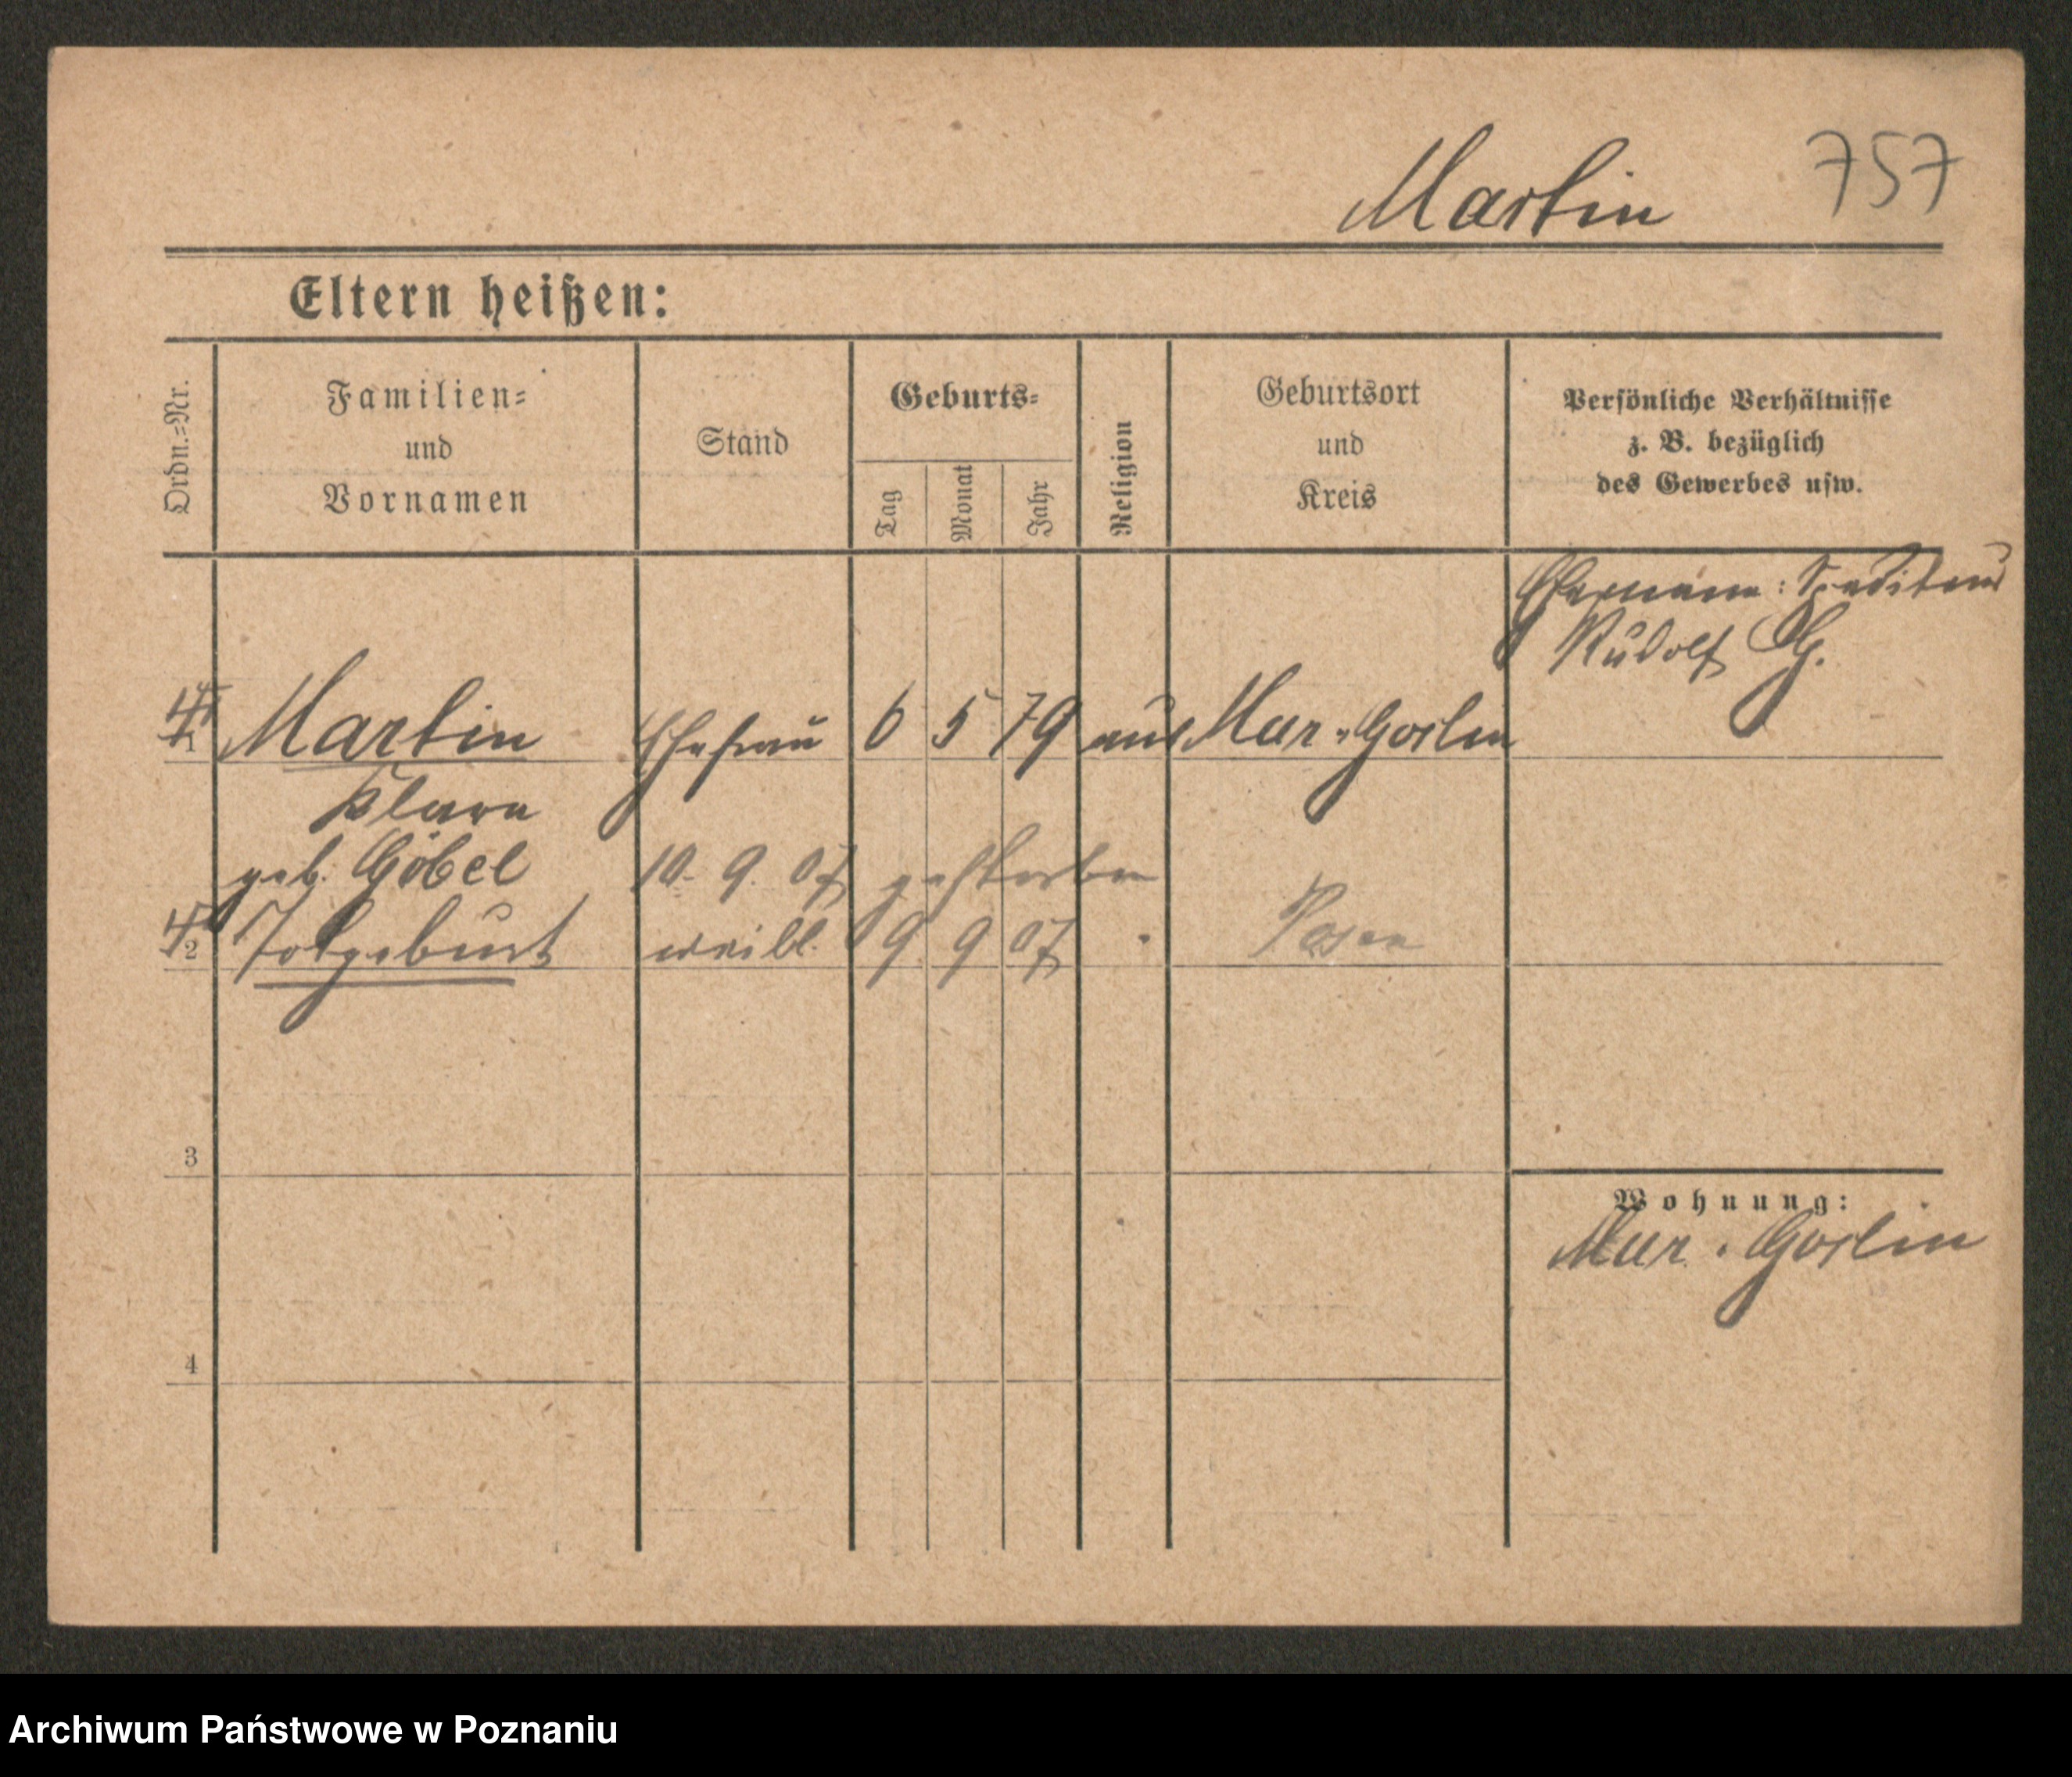 Martin 757
Eltern heißen:
Ordn.=Nr.
Familien=
und
Vornamen
Stand
Geburts=
Tag
Monat
Jahr
Religion
Geburtsort
und
Kreis
Persönliche Verhältnisse
z. B. bezüglich
des Gewerbes usw.
Ehemann: Spediteur
Rudolf
1 Martin Ehefrau 6 5 79 Mur. Goslin
Klara
geb. Göbel 10. 9. 07 gestorben
2 Totgeburt weibl. 9 9 07 Posen
3
Wohnung:
Mur. Goslin
4
Archiwum Państwowe w Poznaniu